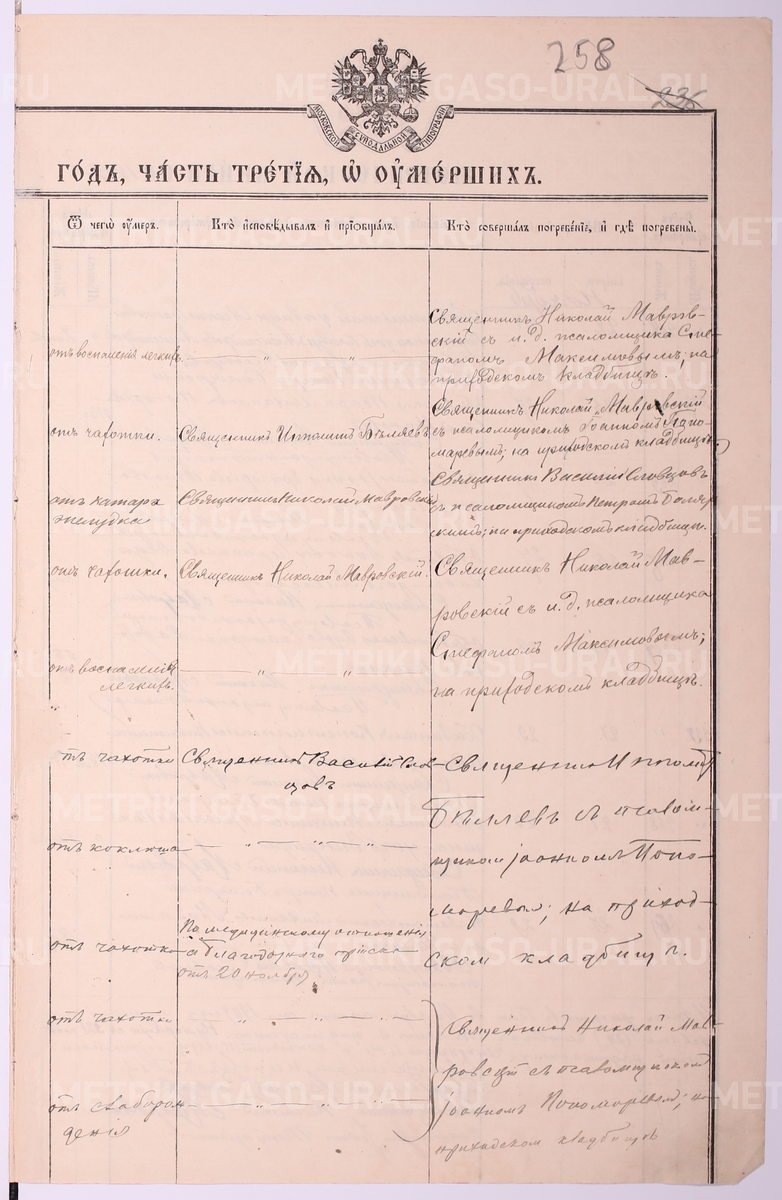 258
236
МОСКОВСКОЙ СѴНОДАЛЬНОЙ ТИПОГРАФІИ
ГОДЪ, ЧАСТЬ ТРЕТІЯ, Ѡ ОУМЕРШИХЪ.
Ѿ чегѡ оумеръ.
Кто исповѣдывалъ и прїобщалъ.
Кто совершалъ погребенїе, и гдѣ погребены.
отъ воспаленія легкихъ
Священникъ Николай Мавров-
скій съ и. д. псаломщика Сте-
фаномъ Максимовымъ; на
приходскомъ кладбищѣ.
отъ чахотки.
Священникъ Ипполитъ Бѣляевъ
Священникъ Николай Мавровскій
съ псаломщикомъ Іоанномъ Поно-
маревымъ; на приходскомъ кладбищѣ
отъ катара
желудка
Священникъ Николай Мавровскій
Священникъ Василій Словцовъ
съ псаломщикомъ Петромъ Бояр-
скимъ; на приходскомъ кладбищѣ.
отъ чахотки.
Священникъ Николай Мавровскій.
Священникъ Николай Мав-
ровскій съ и. д. псаломщика
Стефаномъ Максимовымъ;
на приходскомъ кладбищѣ.
отъ воспаленія
легкихъ.
отъ чахотки
Священникъ Василій Слов-
цовъ
Священникъ Ипполитъ
Бѣляевъ съ псалом-
щикомъ Іоанномъ Поно-
маревымъ; на приход-
ском кладбищѣ.
отъ коклюша
отъ чахотки
По медицинскому отношенію
благодарного
отъ 20 ноября
отъ чахотки
Священникъ Николай Мав-
ровскій съ псаломщикомъ
Іоанномъ Пономаревымъ; на
приходском кладбищѣ
отъ слаборож-
денія
METRIKI.GASO-URAL.RU